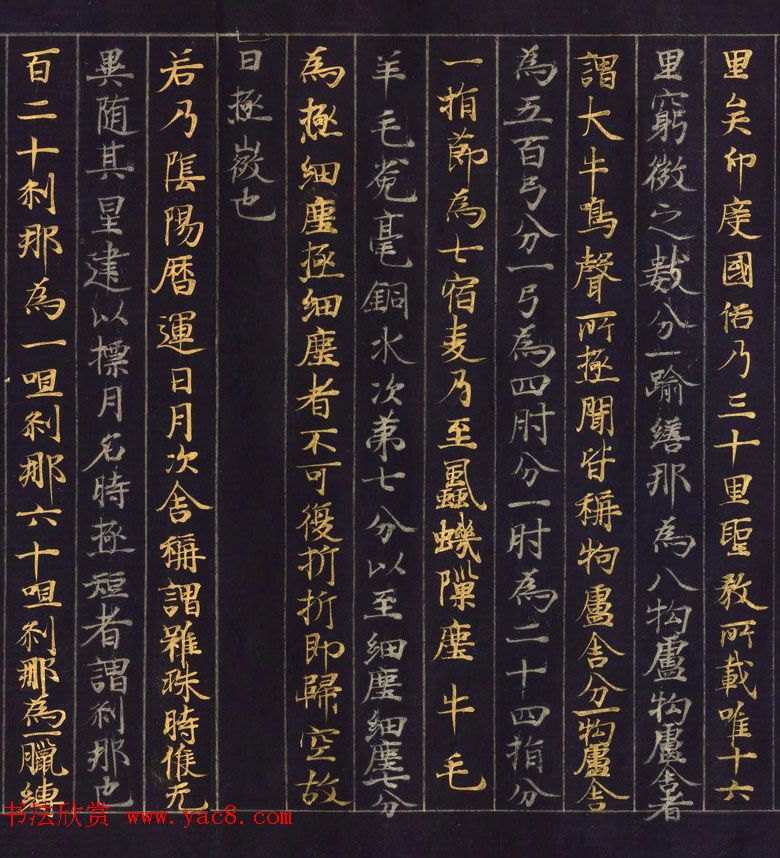 里矣印度國俗乃三十里聖教所載唯十六
里窮微之數分一踰繕那為八拘盧拘盧舍者
謂大牛鳴聲所極聞皆稱拘盧舍分一拘盧舍
為五百弓分一弓為四肘分一肘為二十四指分
一指節為七宿麦乃至虱蟣隟塵牛毛
羊毛兔毫銅水次第七分以至細塵細塵七分
為極細塵極細塵者不可復折折即歸空故
曰極微也
若乃陰陽曆運日月次舍稱謂雖殊時候无
異随其星建以摽月名時極短者謂刹那也
百二十刹那為一呾刹那六十呾刹那為一臘縛
书法欣赏 www.yac8.com